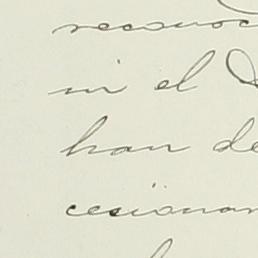 reconoc
ni el
han de
cesionar